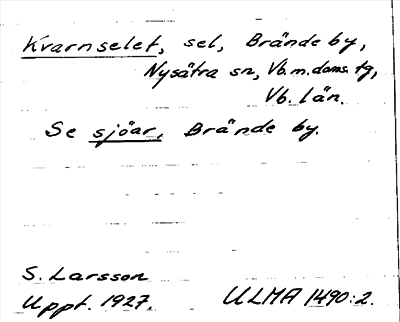 Kvarnselet, sel, Brände by,
Nysätra sn, Vb. m. doms. tg,
Vb. län.
Se sjöar, Brände by.
S. Larsson
Uppt. 1927.
ULMA 1490:2.